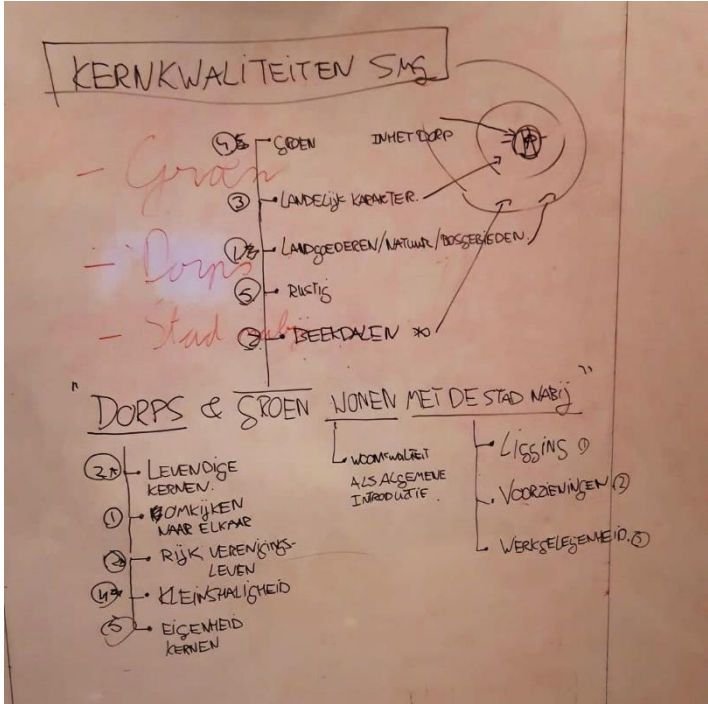 KERNKWALITEITEN SMG
GROEN
IN HET DORP
- Groen
③ LANDELIJK KARAKTER.
LANDGOEDEREN/NATUUR/BOSGEBIEDEN.
- Dorps
⑤ RUSTIG
- Stad nabij
② BEEKDALEN
"DORPS & GROEN WONEN MET DE STAD NABIJ"
② LEVENDIGE
KERNEN.
① OMKIJKEN
NAAR ELKAAR
RIJK VERENIGINGS-
LEVEN
④ KLEINSHALIGHEID
⑤ EIGENHEID
KERNEN
WOONKWALITEIT
ALS ALGEMENE
INTRODUCTIE.
LIGGING ①
VOORZIENINGEN ②
WERKGELEGENHEID. ③